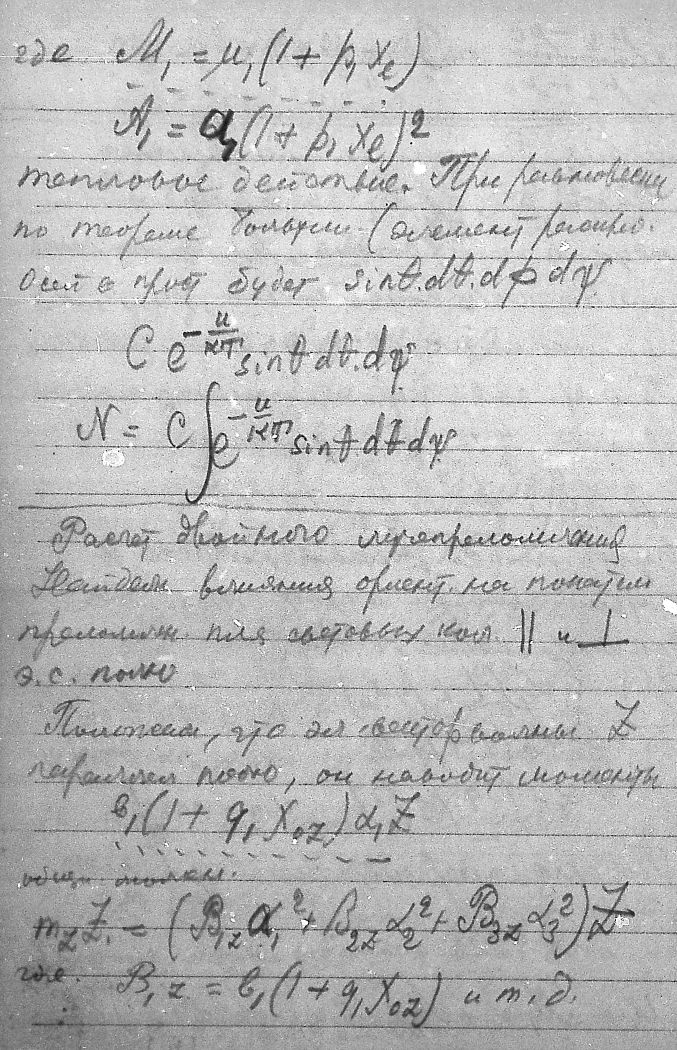 где M₁ = μ₁(1 + p₁χₑ)
A₁ = a₁(1 + p₁χₑ)²
тепловое действие. При равновесии
по теореме Больцм (элемент
будет sinθ.dθ.dφ dψ
C e^{-u/кT} sinθ dθ.dψ
N = C ∫ e^{-u/кT} sinθ dθ dψ
Расчет двойного лучепреломления
Найдем влияния ориент. на показател
преломлен. для световых кол || и ⊥
э.с. полю
Положим, что эл вектор волны Z
параллел полю, он наводит моменты
в₁(1 + q₁χ₀z) α₁Z
m_z Z = (B₁z α₁² + B₂z α₂² + B₃z α₃²) Z
где. B₁z = в₁(1 + q₁χ₀z) и т.д.